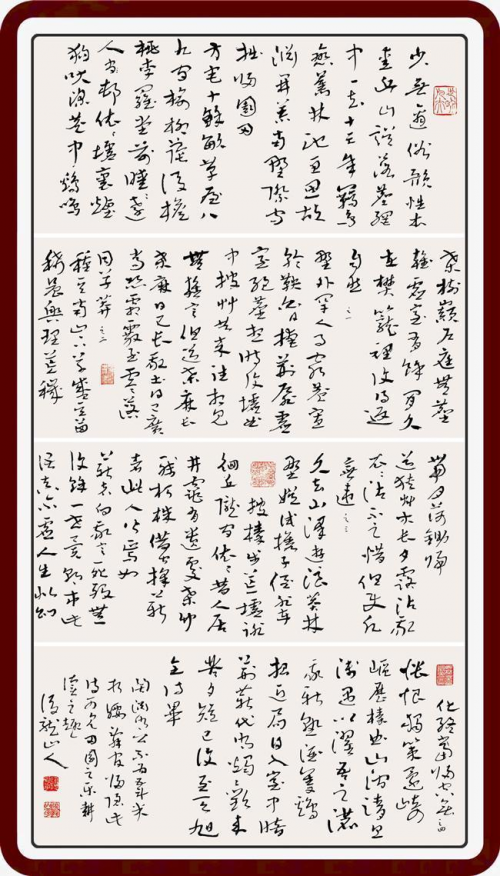 少無適俗韻性本
愛丘山誤落塵網
中一去十三年羈鳥
戀舊林池魚思故
淵開荒南野際守
拙歸園田
方宅十餘畝草屋八
九間榆柳蔭後檐
桃李羅堂前曖曖遠
人村依依墟裏煙
狗吠深巷中雞鳴
桑樹巔戶庭無塵
雜虛室有餘閒久
在樊籠裡復得返
自然 之一
野外罕人事窮巷寡
輪鞅白日掩荊扉虛
室絕塵想時復墟曲
中披草共來往相見
無雜言但道桑麻長
桑麻日已長我土日已廣
常恐霜霰至零落
同草莽 之二
種豆南山下草盛豆苗
稀晨興理荒穢
帶月荷鋤歸
道狹草木長夕露沾我
衣沾不足惜但使願
無違 之三
久去山澤遊浪莽林
野娛試攜子侄輩
披榛步荒墟徘
徊丘隴間依依昔人居
井竈有遺處桑竹
殘朽株借問採薪
者此人皆焉如
薪者向我言死歿無
復餘一世異朝市此
語真不虛人生似幻
化終當歸空無 之四
悵恨獨策還崎
嶇歷榛曲山澗清且
淺遇以濯吾足漉
我新熟酒隻雞
招近局日入室中暗
荊薪代明燭歡來
苦夕短已復至天旭
全詩畢
陶淵明公不為五斗米
折腰辭官歸隱此
詩可見田園之樂耕
之趣
山人